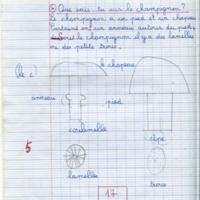 Que sais tu sur le champignon?
Le champignon a un pied et un chapeau
Certains ont un anneau autour du pied,
Sous le champignon il y a des lamelles
ou des petits trous.
le chapeau
anneau
pied
coulemelle
cèpe
5
lamelle
trous
17